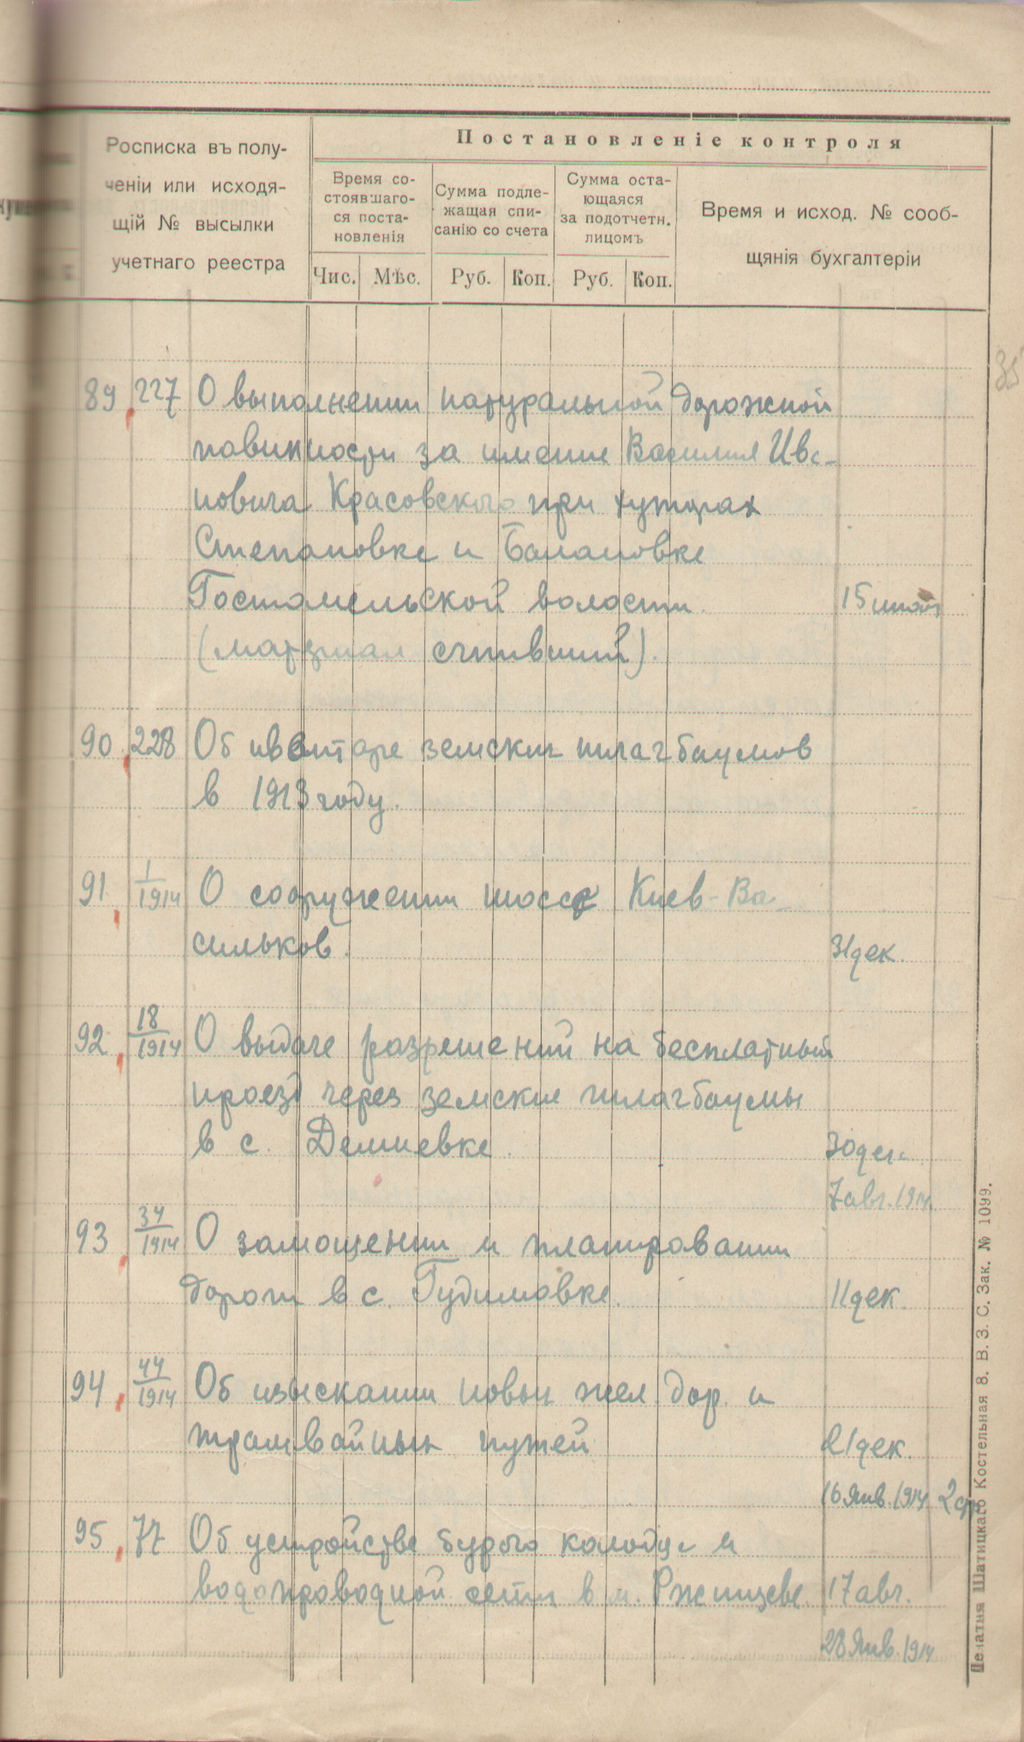 Постановленіе контроля
Росписка въ полу-
ченіи или исходя-
щій № высылки
учетнаго реестра
Время со-
стоявшаго-
ся поста-
новленія
Сумма подле-
жащая спи-
санію со счета
Сумма оста-
ющаяся
за подотчетн.
лицомъ
Время и исход. № сооб-
щянія бухгалтеріи
Чис. Мѣс. Руб. Коп. Руб. Коп.
89 227 О выполнении натуральной дорожной
повинности за имение Василия Ива-
новича Красовского при хуторах
Степановке и Балановке
Гостомельской волости. 15
(материал сшивший).
90 228 Об ивентаре земских шлагбаумов
в 1913 году.
91 1/1914 О сооружении шоссе Киев-Ва-
сильков. 31 дек.
92 18/1914 О выдаче разрешений на бесплатный
проезд через земские шлагбаумы
в с. Демиевке. 30 дек.
7 авг. 1914
93 34/1914 О замощении и планировании
дороги в с. Гудимовке. 11 дек.
94 44/1914 Об изыскании новых жел. дор. и
трамвайных путей 21 дек.
16 янв. 1914
95 77 Об устройстве бурого колодца и
водопроводной сети в м. Ржищеве 17 авг.
28 янв. 1914
Печатня Шатицкаго Костельная 8. В. З. С. Зак. № 1099.